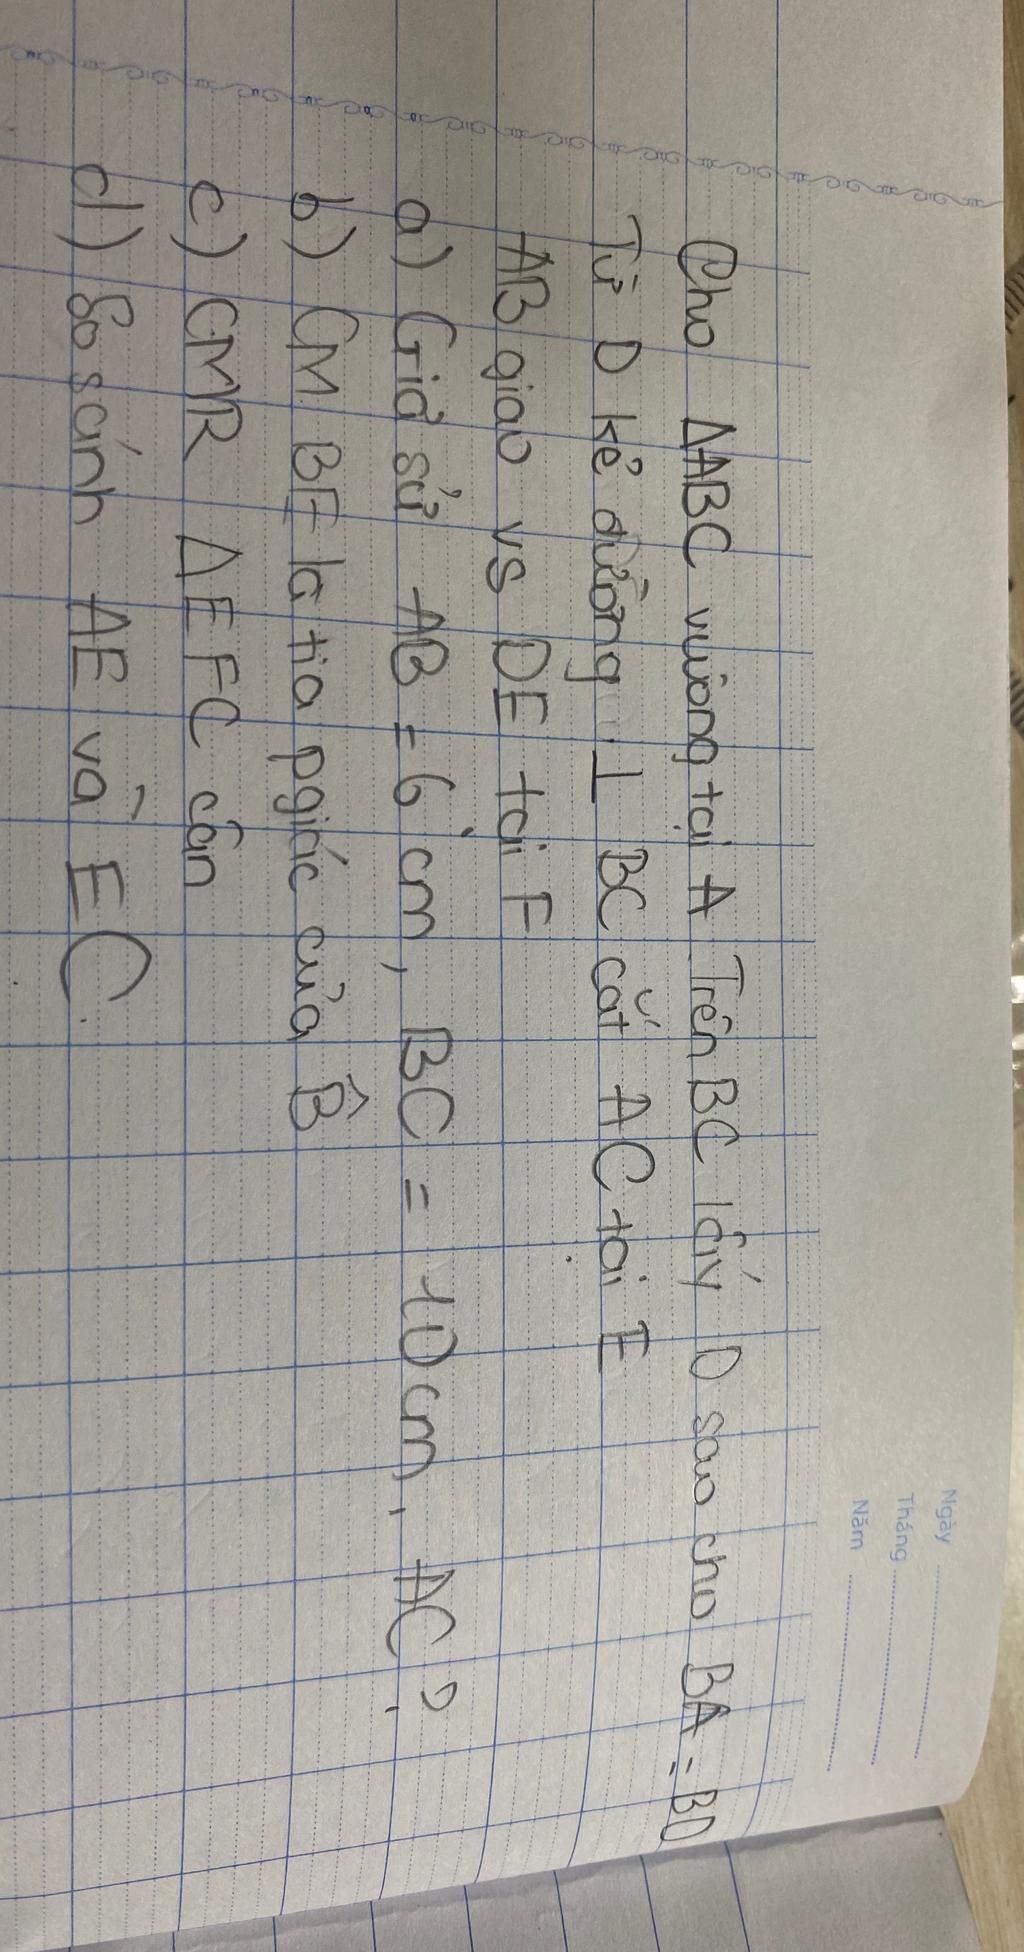 Ngày
Tháng
Năm
Cho ΔABC vuông tại A Trên BC lấy D sao cho BA = BD
Từ D kẻ đường ⊥ BC cắt AC tại E
AB giao vs DE tại F
a) Giả sử AB = 6 cm, BC = 10cm, AC?
b) CM BE là tia pgiác của B̂
c) CMR ΔEFC cân
d) So sánh AE và EC